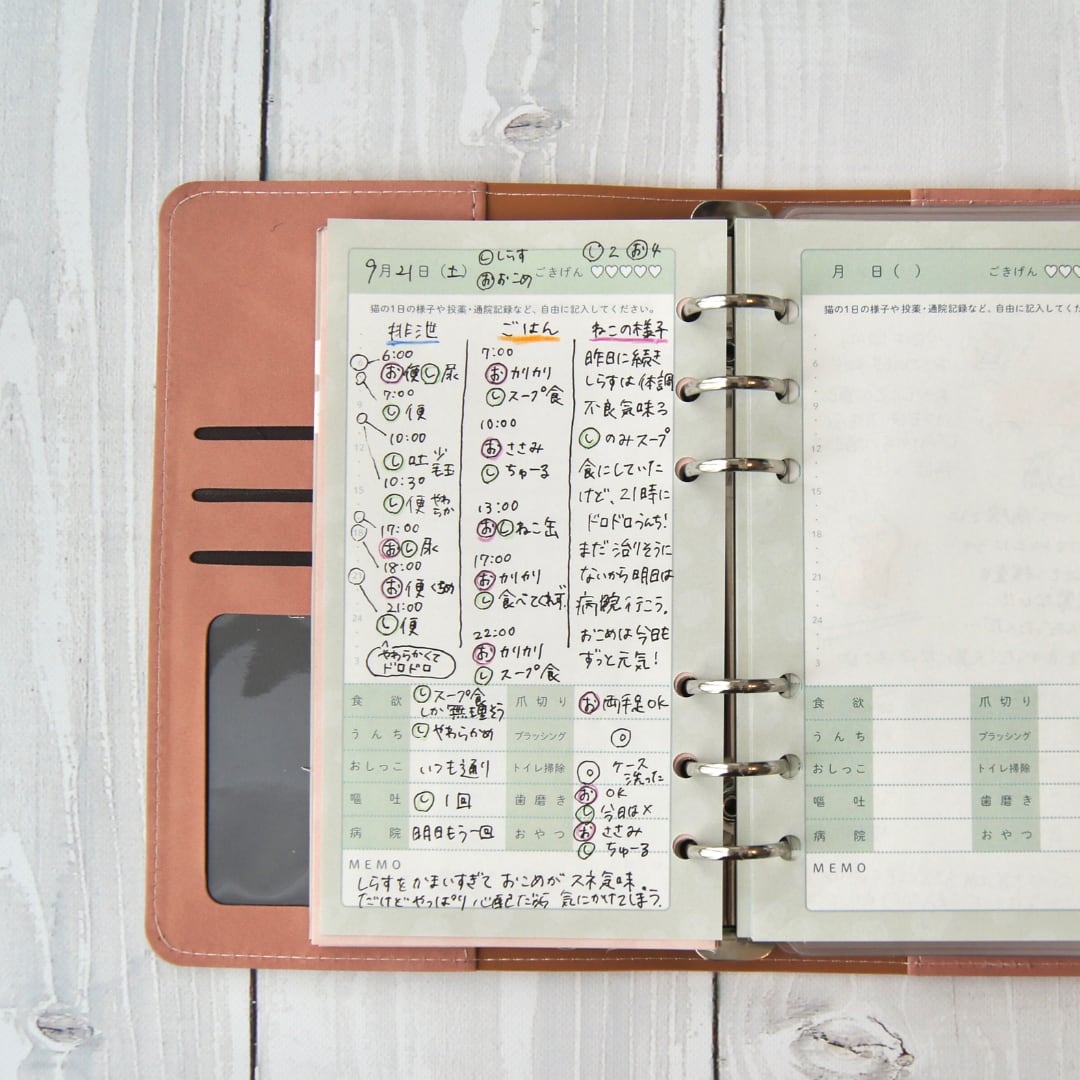 ㋛しらす ㋛2 ㋔4
9月21日(土) ㋔おこめ ごきげん ♡♡♡♡♡
猫の1日の様子や投薬・通院記録など、自由に記入してください。
排泄
6:00
㋔便㋛尿
7:00
㋛便
10:00
㋛吐 少毛玉
10:30
㋛便 やわらか
17:00
㋔㋛尿
18:00
㋔便
21:00
㋛便
やわらかくて
ドロドロ
ごはん
7:00
㋔カリカリ
㋛スープ食
10:00
㋔ささみ
㋛ちゅーる
13:00
㋔㋛ねこ缶
17:00
㋔カリカリ
㋛食べてくれず
22:00
㋔カリカリ
㋛スープ食
ねこの様子
昨日に続き
しらすは体調
不良気味ろ
㋛のみスープ
食にしていた
けど、21時に
ドロドロうんち!
まだ治りそうに
ないから明日は
病院行こう。
おこめは今日も
ずっと元気!
6
9
12
15
18
21
24
3
食欲 ㋛スープ食
しか無理そう
爪切り ㋔両手足OK
うんち ㋛やわらかめ ブラッシング ◎
おしっこ いつも通り トイレ掃除 ◎ ケース
洗った
嘔吐 ㋛1回 歯磨き ㋔OK
㋛今日は×
病院 明日もう一回 おやつ ㋔ささみ
㋛ちゅーる
MEMO
しらすをかまいすぎておこめがスネ気味。
だけどやっぱり心配だから気にかけてしまう。
月 日( ) ごきげん ♡♡
猫の1日の様子や投薬・通院記録など、自由に記入してくだ
6
9
12
15
18
21
24
3
食欲 爪切り
うんち ブラッシング
おしっこ トイレ掃除
嘔吐 歯磨き
病院 おやつ
MEMO